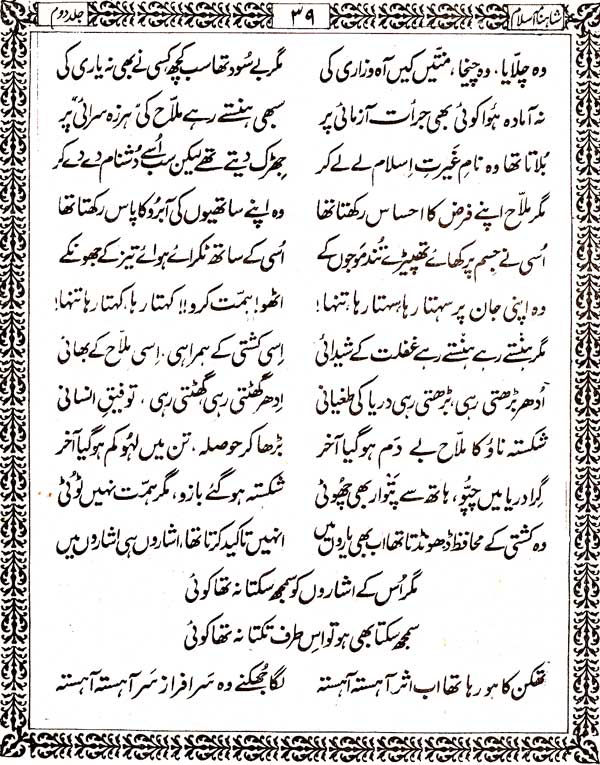 شاہنامہ اسلام ۳۹ جلد دوم
وہ چلّایا، وہ چیخا، منّتیں کیں آہ و زاری کی مگر بے سُود تھا سب کچھ کسی نے بھی نہ یاری کی
نہ آمادہ ہُوا کوئی بھی جرأت آزمائی پر سبھی ہنستے رہے ملّاح کی ہرزہ سرائی پر
بُلاتا تھا وہ نامِ غیرتِ اِسلام لے لے کر جھڑک دیتے تھے لیکن سب اُسے دشنام دے دے کر
مگر ملّاح اپنے فرض کا احساس رکھتا تھا وہ اپنے ساتھیوں کی آبرو کا پاس رکھتا تھا
اُسی نے جسم پر کھائے تھپیڑے تُند موجوں کے اُسی کے ساتھ ٹکرائے ہوائے تیز کے جھونکے
وہ اپنی جان پر سہتا رہا سہتا رہا، تنہا! اٹھو! ہمّت کرو!! کہتا رہا، کہتا رہا تنہا!
مگر ہنستے رہے ہنستے رہے غفلت کے شیدائی اِسی کشتی کے ہمراہی، اِسی ملّاح کے بھائی
اُدھر بڑھتی رہی، بڑھتی رہی دریا کی طغیانی اِدھر گھٹتی رہی گھٹتی رہی، توفیقِ انسانی
شکستہ ناؤ کا ملّاح بے دَم ہوگیا آخر بڑھا کر حوصلہ، تن میں لہُو کم ہوگیا آخر
گِرا دریا میں چپّو، ہاتھ سے پتوار بھی چھُوٹی شکستہ ہوگئے بازو، مگر ہمّت نہیں ٹوُٹی
وہ کشتی کے محافظ ڈھونڈتا تھا اب بھی یاروں میں انہیں تاکید کرتا تھا، اشاروں ہی اشاروں میں
مگر اُس کے اشاروں کو سمجھ سکتا نہ تھا کوئی
سمجھ سکتا بھی ہو تو اِس طرف تکتا نہ تھا کوئی
تھکن کا ہو رہا تھا اب اثر آہستہ آہستہ لگا جُھکنے وہ سَرافراز سَر آہستہ آہستہ